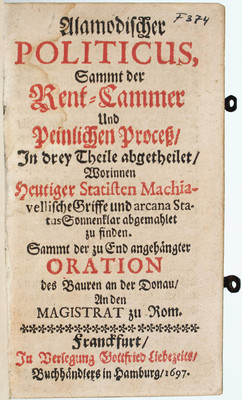 F 374
Alamodischer
POLITICUS,
Sammt der
Rent-Cammer
Und
Peinlichen Proceß/
In drey Theile abgetheilet/
Worinnen
Heutiger Statisten Machia-
vellische Griffe und arcana Sta-
tus Sonnenklar abgemahlet
zu finden.
Sammt der zu End angehängter
ORATION
des Bauren an der Donau/
An den
MAGISTRAT zu Rom.
Franckfurt/
In Verlegung Gottfried Liebezeits/
Buchhändlers in Hamburg/1697.